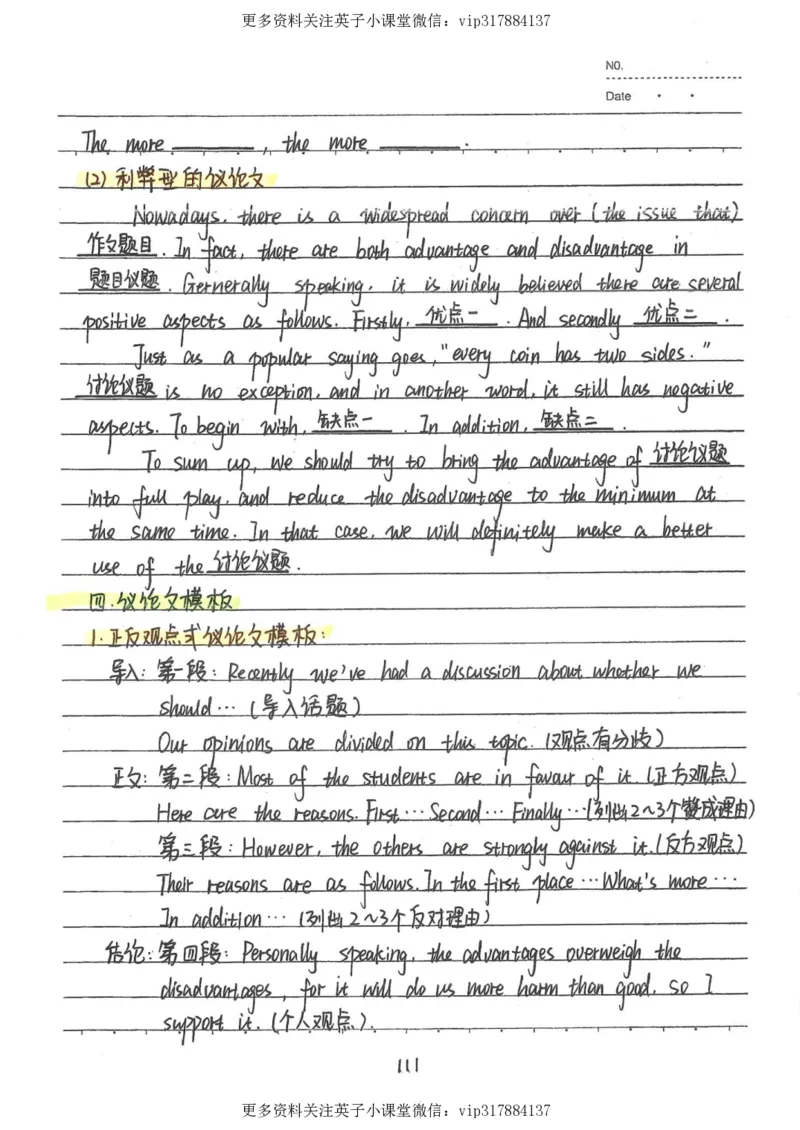 更多资料关注英子小课堂微信：vip317884137
NO.
Date
The more ________, the more ________.
(2) 利弊型的议论文
Nowadays, there is a widespread concern over (the issue that)
作文题目. In fact, there are both advantage and disadvantage in
题目议题. Gernerally speaking, it is widely believed there are several
positive aspects as follows. Firstly, 优点一. And secondly 优点二.
Just as a popular saying goes, "every coin has two sides."
讨论议题 is no exception, and in another word, it still has negative
aspects. To begin with, 缺点一. In addition, 缺点二.
To sum up, we should try to bring the advantage of 讨论议题
into full play, and reduce the disadvantage to the minimum at
the same time. In that case, we will definitely make a better
use of the 讨论议题.
四.议论文模板
1.正反观点式议论文模板:
导入: 第一段: Recently we've had a discussion about whether we
should… (导入话题)
Our opinions are divided on this topic. (观点有分歧)
正文: 第二段: Most of the students are in favour of it. (正方观点)
Here are the reasons. First… Second… Finally… (列出2~3个赞成理由)
第三段: However, the others are strongly against it. (反方观点)
Their reasons are as follows. In the first place… What's more…
In addition… (列出2~3个反对理由)
结论: 第四段: Personally speaking, the advantages overweigh the
disadvantages, for it will do us more harm than good, so I
support it. (个人观点).
111
更多资料关注英子小课堂微信：vip317884137